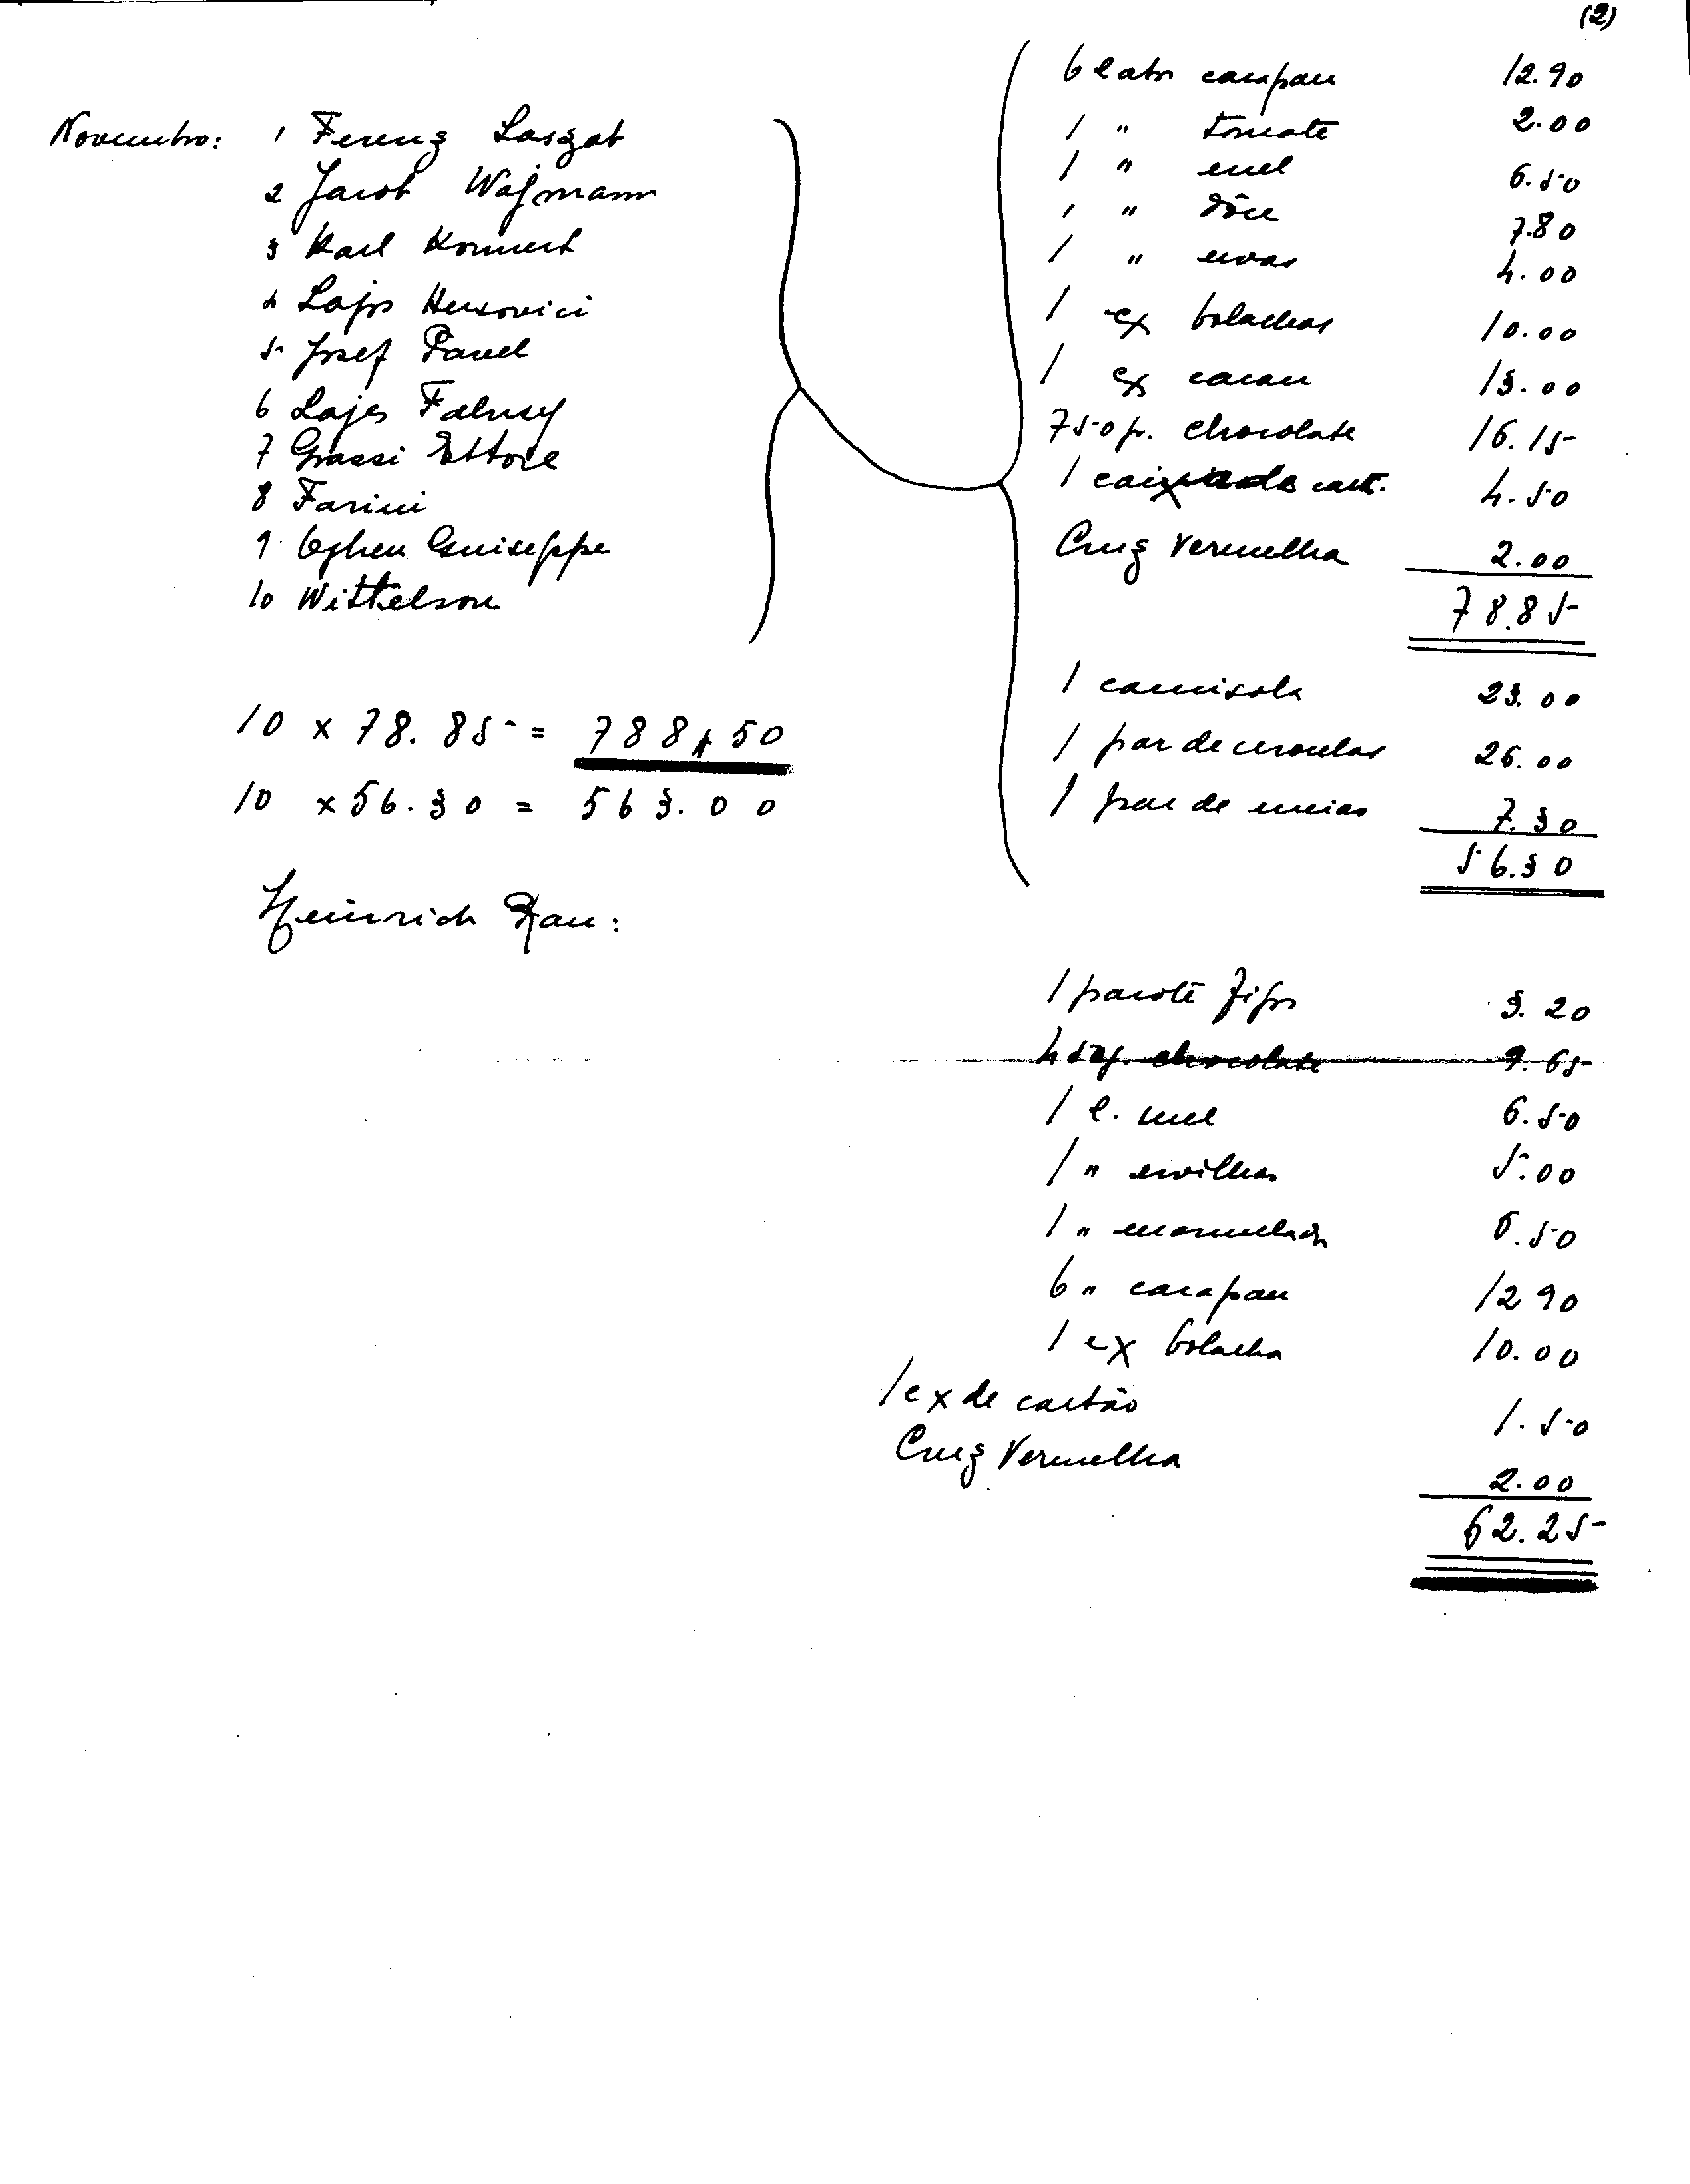 (2)
Novembro:
1 Ferenz Laszat
2 Jacob Wajmann
3 Karl Konnert
4 Lajos Herxovici
5 Josef Pavel
6 Lajes Falusy
7 Grassi Ettore
8 Farini
9 Oghen Guiseppe
10 Wittelsone
6 latas carapau 12.90
1 " tomate 2.00
1 " mel 6.50
1 " dôce 7.80
1 " uvas 4.00
1 cx bolachas 10.00
1 cx cacau 13.00
750 gr. chocolate 16.15
1 caixa de cart. 4.50
Cruz Vermelha 2.00
78.85
1 camisola 23.00
1 par de ceroulas 26.00
1 par de meias 7.30
56.30
10 x 78.85 = 788,50
10 x 56.30 = 563.00
Heinrich Rau:
1 pacote figos 3.20
chocolate 9.65
1 l. mel 6.50
1 " ervilhas 5.00
1 " marmelada 6.50
6 " carapau 12 90
1 cx bolacha 10.00
1 cx de cartão 1.50
Cruz Vermelha 2.00
62.25